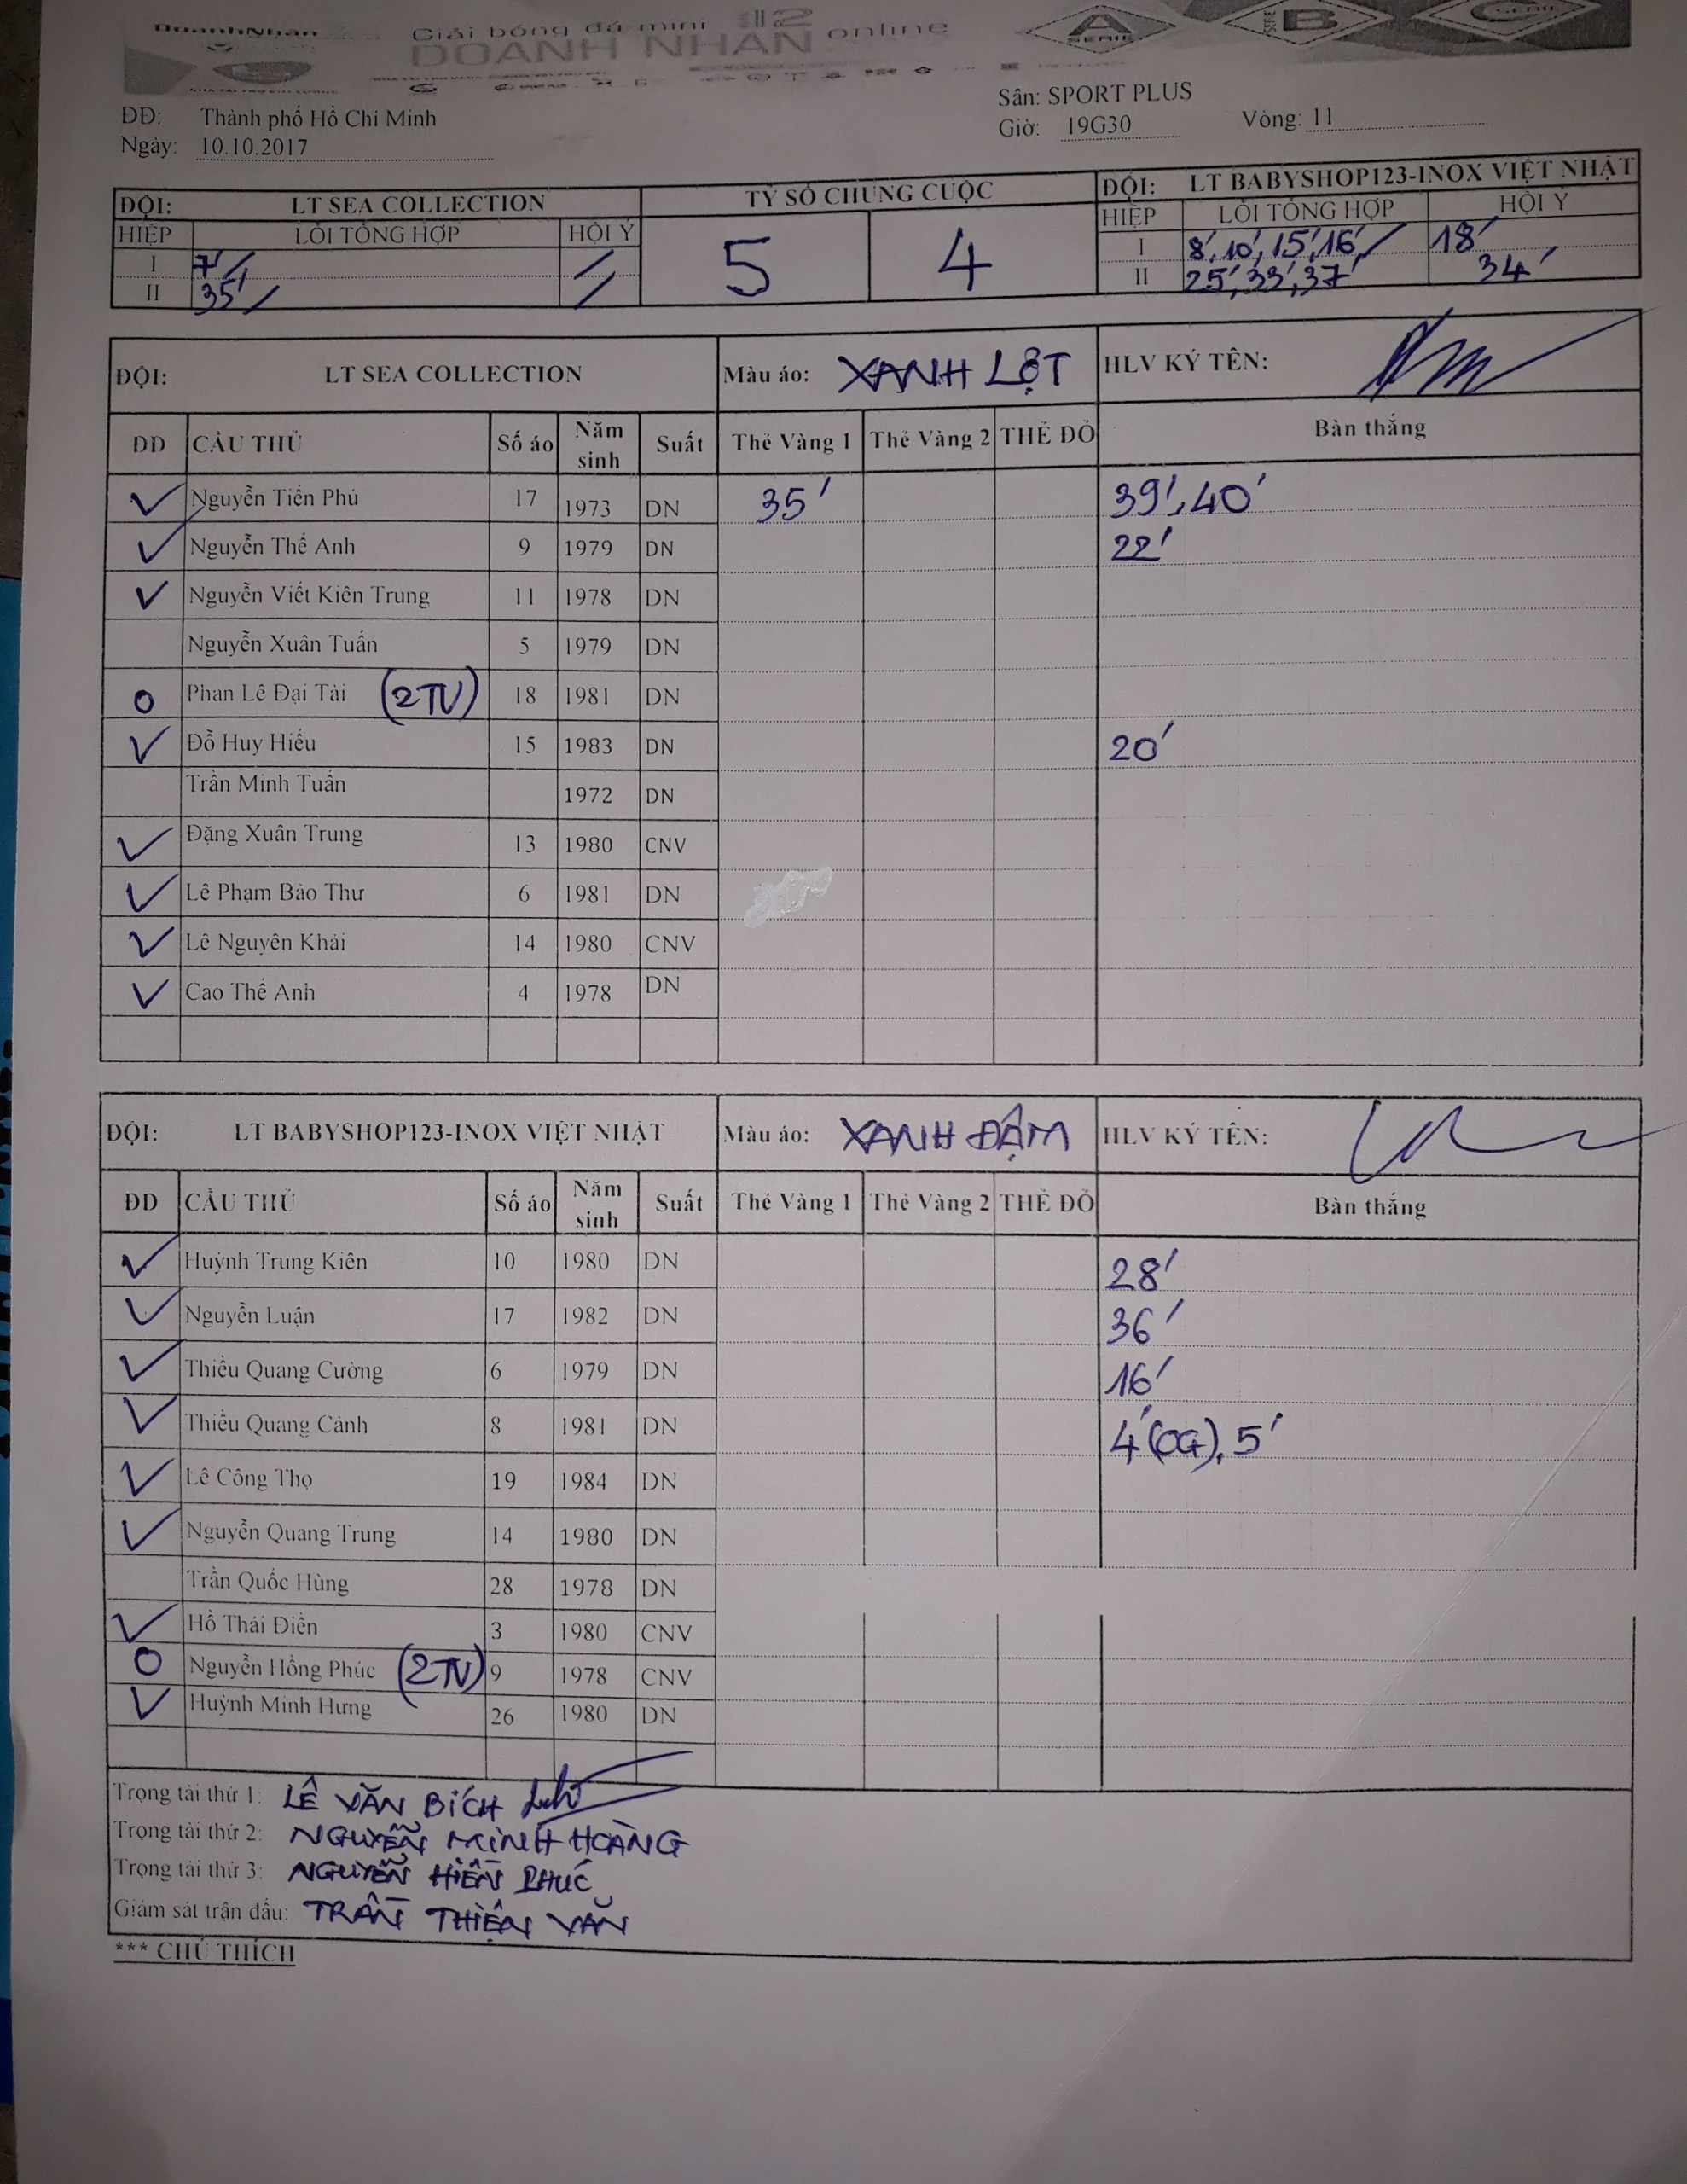 DoanhNhân Giải bóng đá mini 12 online
DOANH NHÂN
A SERIE B C SERIE
Sân: SPORT PLUS
ĐĐ: Thành phố Hồ Chí Minh
Giờ: 19G30 Vòng: 11
Ngày: 10.10.2017
ĐỘI: LT SEA COLLECTION TỶ SỐ CHUNG CUỘC ĐỘI: LT BABYSHOP123-INOX VIỆT NHẬT
HIỆP LỖI TỔNG HỢP HỘI Ý 5 4 HIỆP LỖI TỔNG HỢP HỘI Ý
I 7' I 8', 10', 15', 16' 18'
II 35' II 25', 33', 37' 34'
ĐỘI: LT SEA COLLECTION Màu áo: XANH LỢT HLV KÝ TÊN:
ĐD CẦU THỦ Số áo Năm sinh Suất Thẻ Vàng 1 Thẻ Vàng 2 THẺ ĐỎ Bàn thắng
✓ Nguyễn Tiến Phú 17 1973 DN 35' 39', 40'
✓ Nguyễn Thế Anh 9 1979 DN 22'
✓ Nguyễn Viết Kiên Trung 11 1978 DN
Nguyễn Xuân Tuấn 5 1979 DN
O Phan Lê Đại Tài (2TV) 18 1981 DN
✓ Đỗ Huy Hiếu 15 1983 DN 20'
Trần Minh Tuấn 1972 DN
✓ Đặng Xuân Trung 13 1980 CNV
✓ Lê Phạm Bảo Thư 6 1981 DN
✓ Lê Nguyên Khải 14 1980 CNV
✓ Cao Thế Anh 4 1978 DN
ĐỘI: LT BABYSHOP123-INOX VIỆT NHẬT Màu áo: XANH ĐẬM HLV KÝ TÊN:
ĐD CẦU THỦ Số áo Năm sinh Suất Thẻ Vàng 1 Thẻ Vàng 2 THẺ ĐỎ Bàn thắng
✓ Huỳnh Trung Kiên 10 1980 DN 28'
✓ Nguyễn Luận 17 1982 DN 36'
✓ Thiều Quang Cường 6 1979 DN 16'
✓ Thiều Quang Cảnh 8 1981 DN 4'(OG), 5'
✓ Lê Công Thọ 19 1984 DN
✓ Nguyễn Quang Trung 14 1980 DN
Trần Quốc Hùng 28 1978 DN
✓ Hồ Thái Điền 3 1980 CNV
O Nguyễn Hồng Phúc (2TV) 9 1978 CNV
✓ Huỳnh Minh Hưng 26 1980 DN
Trọng tài thứ 1: LÊ VĂN BÍCH
Trọng tài thứ 2: NGUYỄN MINH HOÀNG
Trọng tài thứ 3: NGUYỄN HIỀN PHÚC
Giám sát trận đấu: TRẦN THIỆN VĂN
*** CHÚ THÍCH